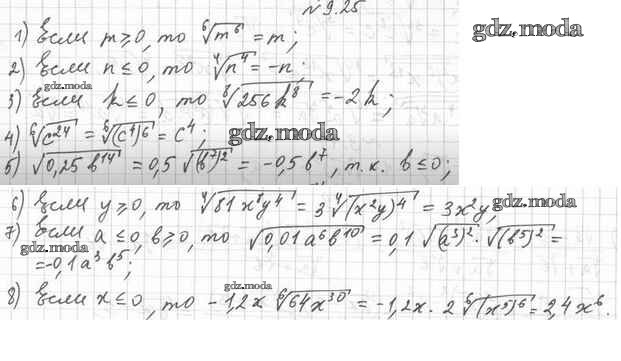 №9.25
1) Если m ≥ 0, то ⁶√m⁶ = m;
gdz.moda
2) Если n ≤ 0, то ⁴√n⁴ = -n;
gdz.moda
3) Если k ≤ 0, то ⁸√256k⁸ = -2k;
4) ⁶√c²⁴ = ⁶√(c⁴)⁶ = c⁴;
gdz.moda
5) √0,25b¹⁴ = 0,5√(b⁷)² = -0,5b⁷, т.к. b ≤ 0;
6) Если y ≥ 0, то ⁴√81x⁸y⁴ = 3 ⁴√(x²y)⁴ = 3x²y;
gdz.moda
7) Если a ≤ 0, b ≥ 0, то √0,01a⁶b¹⁰ = 0,1 √(a³)² · √(b⁵)² =
gdz.moda
= -0,1a³b⁵;
gdz.moda
8) Если x ≤ 0, то -1,2x ⁶√64x³⁰ = -1,2x · 2 ⁶√(x⁵)⁶ = 2,4x⁶.